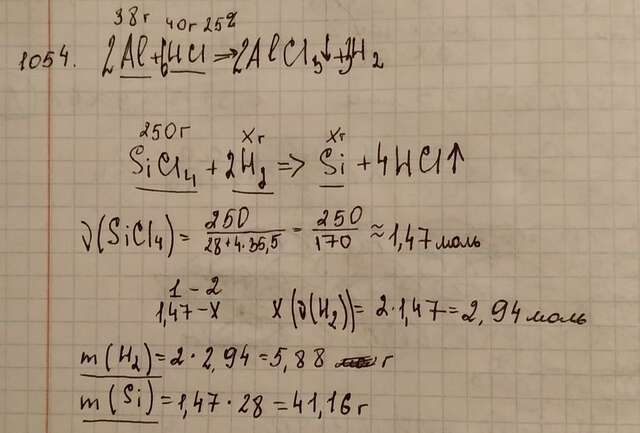 38г 40г 25%
1054. 2Al+6HCl⇒2AlCl3↓+3H2
250г Xг Xг
SiCl4 + 2H2 => Si + 4HCl↑
ν(SiCl4) = 250/28+4·35,5 = 250/170 ≈ 1,47 моль
1 – 2
1,47 – X X(ν(H2)) = 2·1,47 = 2,94 моль
m(H2) = 2·2,94 = 5,88 г
m(Si) = 1,47·28 = 41,16 г